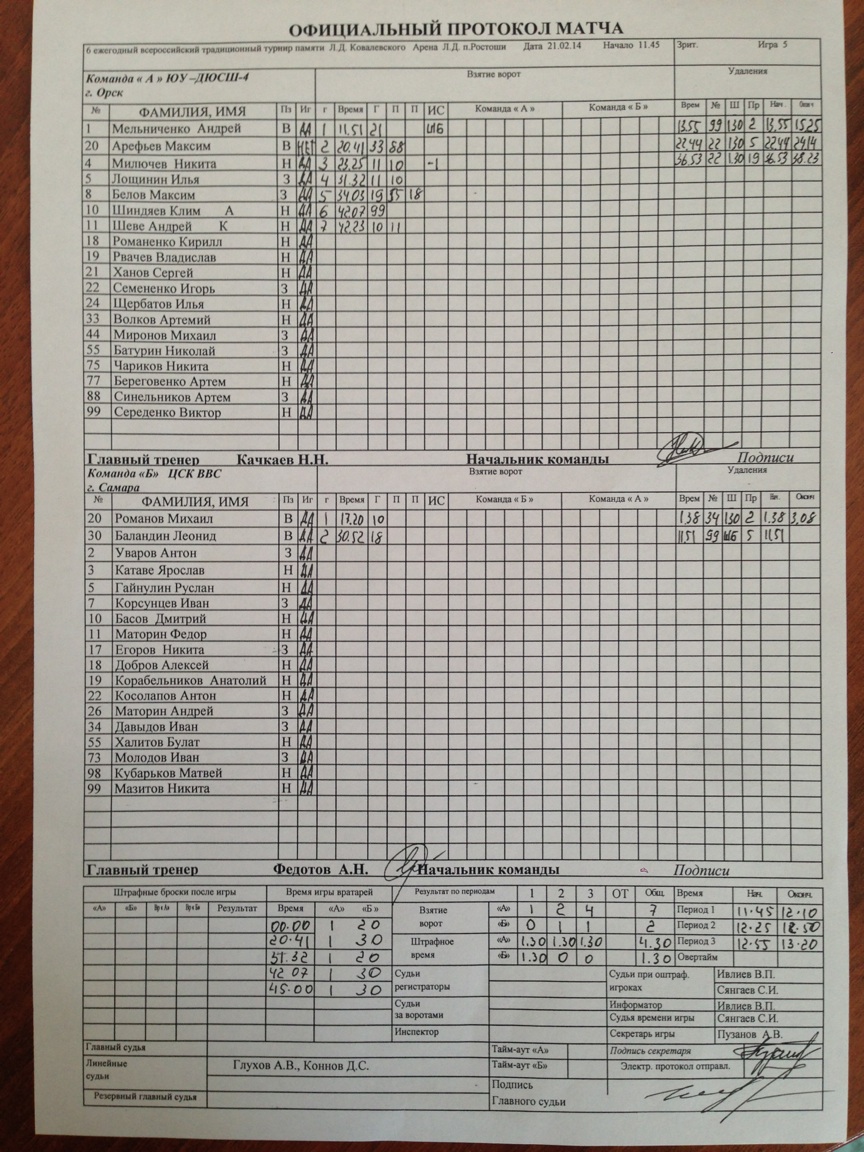 ОФИЦИАЛЬНЫЙ ПРОТОКОЛ МАТЧА
6 ежегодный всероссийский традиционный турнир памяти Л.Д. Ковалевского Арена Л.Д. п.Ростоши Дата 21.02.14 Начало 11.45 Зрит. Игра 5
Команда « А » ЮУ –ДЮСШ-4 Взятие ворот Удаления
г. Орск
№ ФАМИЛИЯ, ИМЯ Пз Иг г Время Г П П ИС Команда « А » Команда « Б » Врем № Ш Пр Нач. Оконч
1 Мельниченко Андрей В ДА 1 11.51 21 ШБ 13.55 99 1.30 2 13.55 15.25
20 Арефьев Максим В НЕТ 2 20.41 33 88 22.44 22 1.30 5 22.44 24.14
4 Милючев Никита Н ДА 3 23.25 11 10 -1 36.53 22 1.30 19 36.53 38.23
5 Лощинин Илья З ДА 4 31.32 11 10
8 Белов Максим З ДА 5 34.03 19 55 18
10 Шиндяев Клим А Н ДА 6 42.07 99
11 Шеве Андрей К Н ДА 7 42.23 10 11
18 Романенко Кирилл Н ДА
19 Рвачев Владислав Н ДА
21 Ханов Сергей Н ДА
22 Семененко Игорь З ДА
24 Щербатов Илья Н ДА
33 Волков Артемий Н ДА
44 Миронов Михаил З ДА
55 Батурин Николай З ДА
75 Чариков Никита Н ДА
77 Береговенко Артем Н ДА
88 Синельников Артем З ДА
99 Середенко Виктор Н ДА
Главный тренер Качкаев Н.Н. Начальник команды Подписи
Команда «Б» ЦСК ВВС Взятие ворот Удаления
г. Самара
№ ФАМИЛИЯ, ИМЯ Пз Иг г Время Г П П ИС Команда « Б » Команда « А » Врем № Ш Пр Оконч
20 Романов Михаил В ДА 1 17.20 10 1.38 34 1.30 2 1.38 3.08
30 Баландин Леонид В ДА 2 30.52 18 11.51 99 ШБ 5 11.51
2 Уваров Антон З ДА
3 Катаве Ярослав Н ДА
5 Гайнулин Руслан Н ДА
7 Корсунцев Иван З ДА
10 Басов Дмитрий Н ДА
11 Маторин Федор Н ДА
17 Егоров Никита З ДА
18 Добров Алексей Н ДА
19 Корабельников Анатолий Н ДА
22 Косолапов Антон Н ДА
26 Маторин Андрей З ДА
34 Давыдов Иван З ДА
55 Халитов Булат Н ДА
73 Молодов Иван З ДА
98 Кубарьков Матвей Н ДА
99 Мазитов Никита Н ДА
Главный тренер Федотов А.Н. Начальник команды Подписи
Штрафные броски после игры Время игры вратарей Результат по периодам 1 2 3 ОТ Общ. Время Нач. Оконч.
«А» «Б» Вр «А» Вр «Б» Результат Время «А» «Б» Взятие ворот «А» 1 2 4 7 Период 1 11.45 12.10
00.00 1 20 «Б» 0 1 1 2 Период 2 12.25 12.50
20.41 1 30 Штрафное время «А» 1.30 1.30 1.30 4.30 Период 3 12.55 13.20
31.32 1 20 «Б» 1.30 0 0 1.30 Овертайм
42 07 1 30 Судьи регистраторы Судьи при оштраф. игроках Ивлиев В.П.
45.00 1 30 Сянгаев С.И.
Судьи за воротами Информатор Ивлиев В.П.
Судья времени игры Сянгаев С.И.
Инспектор Секретарь игры Пузанов А.В.
Главный судья Тайм-аут «А» Подпись секретаря
Линейные судьи Глухов А.В., Коннов Д.С. Тайм-аут «Б» Электр. протокол отправл.
Резервный главный судья Подпись Главного судьи